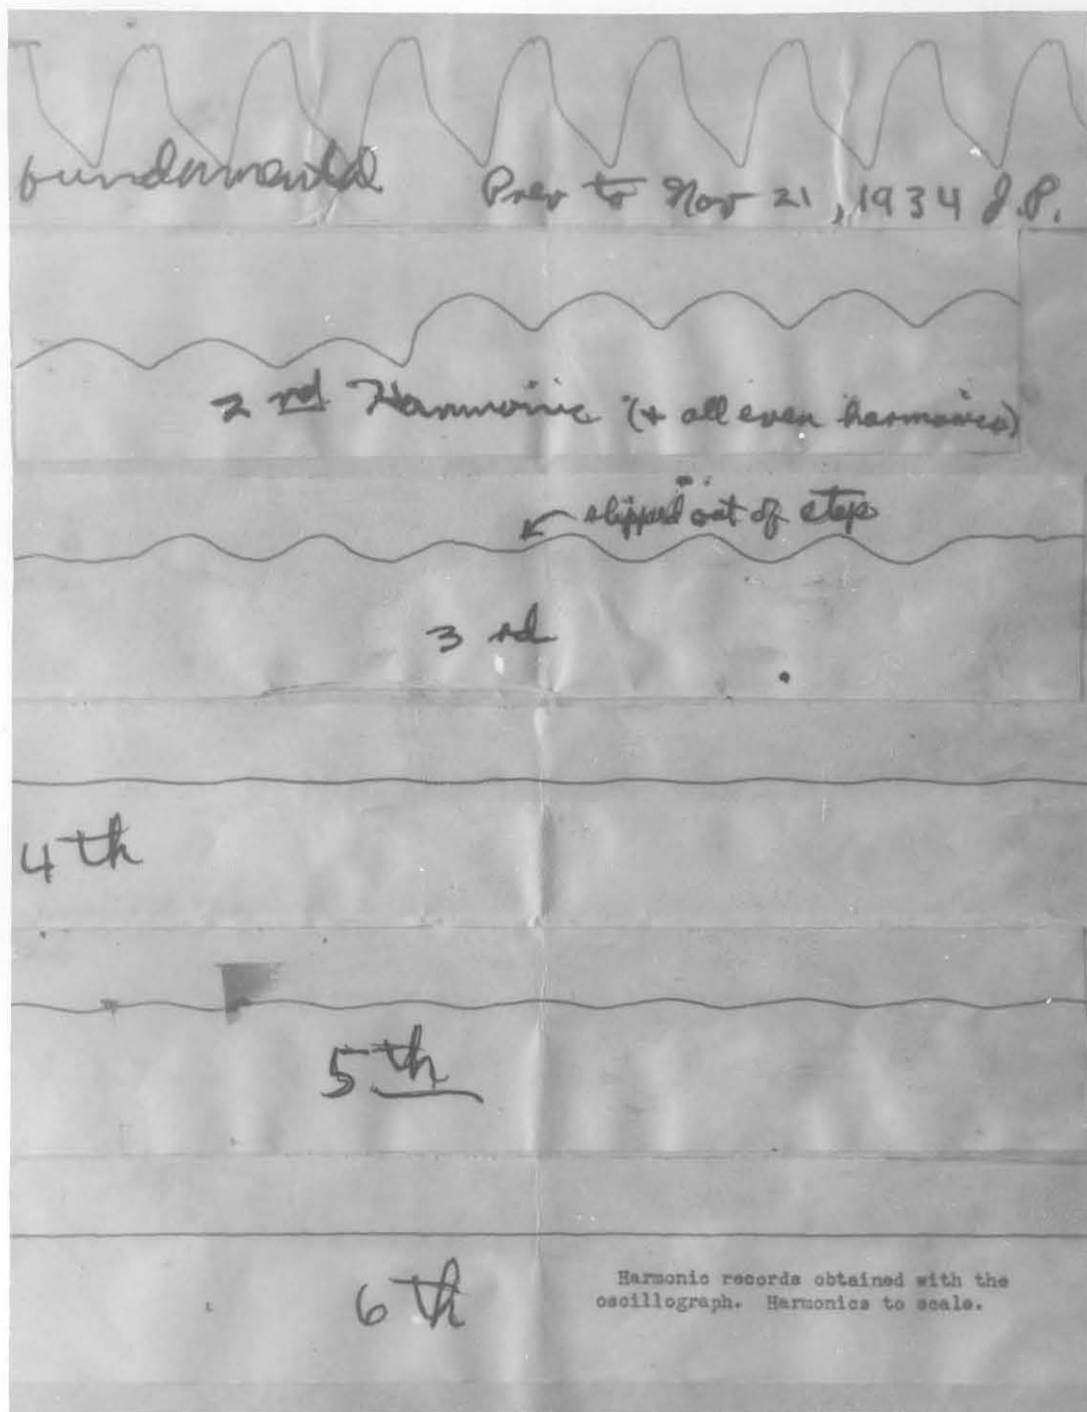 Fundamental
Prev to Nov 21, 1934 J.P.
2 nd Harmonic (+ all even harmonics)
slipped out of step
3 rd
4 th
5 th
6 th
Harmonic records obtained with the
oscillograph. Harmonics to scale.